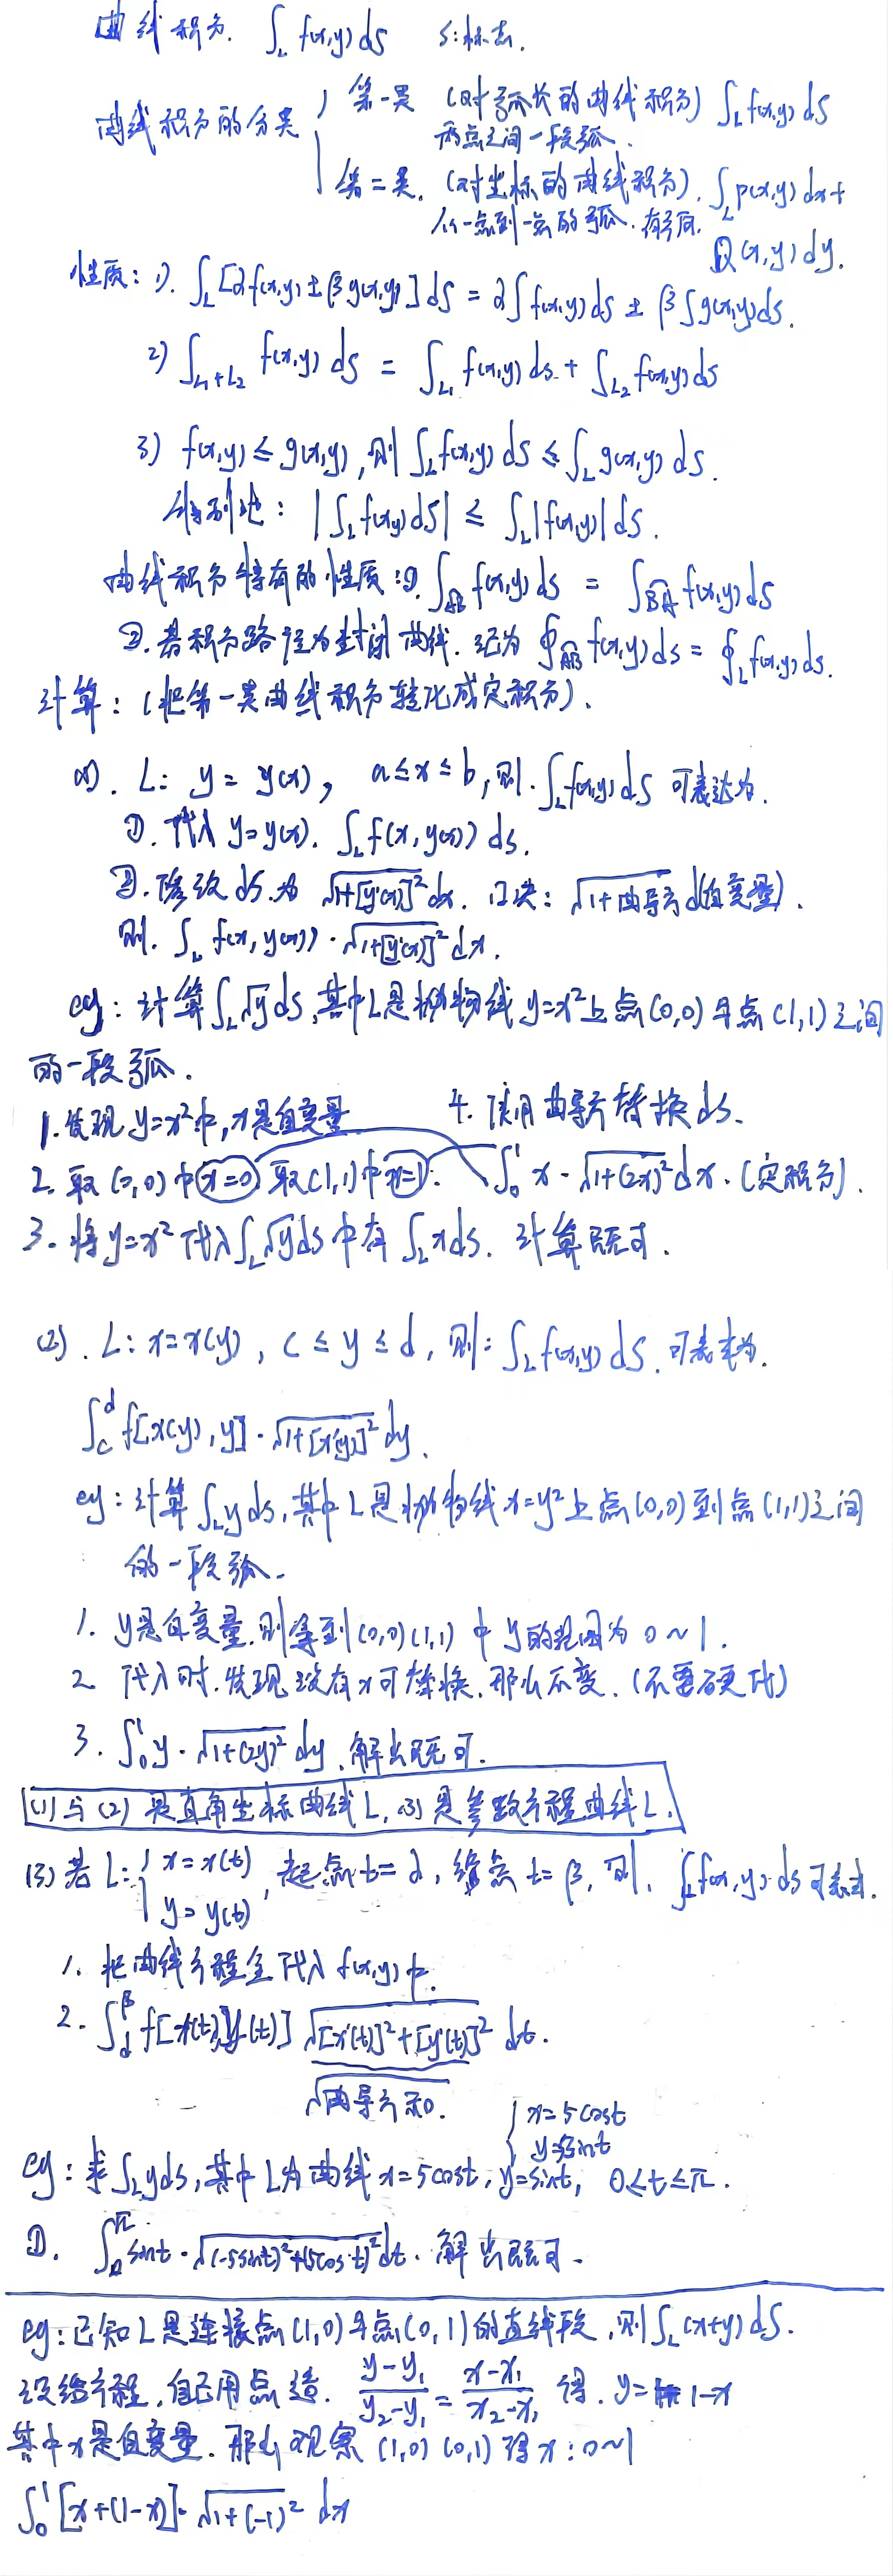 曲线积分. ∫_L f(x,y) ds  s:标志.
曲线积分的分类 { 第一类 (对弧长的曲线积分) ∫_L f(x,y) ds
两点之间一段弧.
第二类. (对坐标的曲线积分). ∫_L P(x,y) dx +
从一点到一点的弧. 有方向. Q(x,y) dy.
性质: 1). ∫_L [αf(x,y) ± βg(x,y)] ds = α∫f(x,y) ds ± β∫g(x,y) ds.
2) ∫_{L1+L2} f(x,y) ds = ∫_{L1} f(x,y) ds + ∫_{L2} f(x,y) ds
3) f(x,y) ≤ g(x,y), 则 ∫_L f(x,y) ds ≤ ∫_L g(x,y) ds.
特别地: |∫_L f(x,y) ds| ≤ ∫_L |f(x,y)| ds.
曲线积分特有的性质: ①. ∫_{AB} f(x,y) ds = ∫_{BA} f(x,y) ds
②. 若积分路径为封闭曲线. 记为 ∮_{AB} f(x,y) ds = ∮_L f(x,y) ds.
计算: (把第一类曲线积分转化成定积分).
(1). L: y = y(x), a≤x≤b, 则. ∫_L f(x,y) ds 可表达为.
①. 代入 y=y(x). ∫_L f(x, y(x)) ds.
②. 修改 ds. 为 √(1+[y'(x)]²) dx. 口决: √(1+曲导方) d(自变量).
则. ∫_L f(x, y(x)) · √(1+[y'(x)]²) dx.
eg: 计算 ∫_L √y ds, 其中L是抛物线 y=x² 上点(0,0)与点(1,1)之间
的一段弧.
1. 发现 y=x² 中, x是自变量  4. 使用曲导方替换 ds.
2. 取(0,0)中 x=0 取(1,1)中 x=1.  ∫_0^1 x · √(1+(2x)²) dx. (定积分).
3. 将 y=x² 代入 ∫_L √y ds 中有 ∫_L x ds. 计算既可.
(2). L: x=x(y), c ≤ y ≤ d, 则: ∫_L f(x,y) ds. 可表达为.
∫_c^d f[x(y), y] · √(1+[x'(y)]²) dy.
eg: 计算 ∫_L y ds, 其中L是抛物线 x=y² 上点(0,0)到点(1,1)之间
的一段弧.
1. y是自变量. 则得到(0,0)(1,1)中y的范围为 0~1.
2. 代入时. 发现没有x可替换. 那么不变. (不要硬代)
3. ∫_0^1 y · √(1+(2y)²) dy. 解出既可.
(1)与(2)是直角坐标曲线L, (3)是参数方程曲线L.
(3) 若L: { x=x(t) y=y(t), 起点t=α, 终点t=β, 则. ∫_L f(x,y) ds 可表达.
1. 把曲线方程全代入f(x,y)中.
2. ∫_α^β f[x(t), y(t)] √([x'(t)]²+[y'(t)]²) dt.
√(曲导方和).
{ x=5cost
y=5sint
eg: 求 ∫_L y ds, 其中L为曲线 x=5cost, y=sint, 0≤t≤π.
①. ∫_0^π sint · √((-5sint)²+(5cost)²) dt. 解出既可.
eg: 已知L是连接点(1,0)与点(0,1)的直线段, 则∫_L (x+y) ds.
没给方程, 自己用点造. (y-y₁)/(y₂-y₁) = (x-x₁)/(x₂-x₁) 得. y= 1-x
其中x是自变量. 那么观察(1,0)(0,1)得 x: 0~1
∫_0^1 [x+(1-x)] · √(1+(-1)²) dx